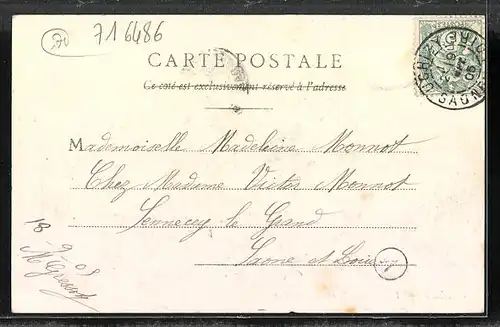 716486
CARTE POSTALE
Ce côté est exclusivement réservé à l'adresse
Mademoiselle Madeleine Monnot
Chez Madame Victor Monnot
Sennecey le Grand
Saone et Loire
18
9 05